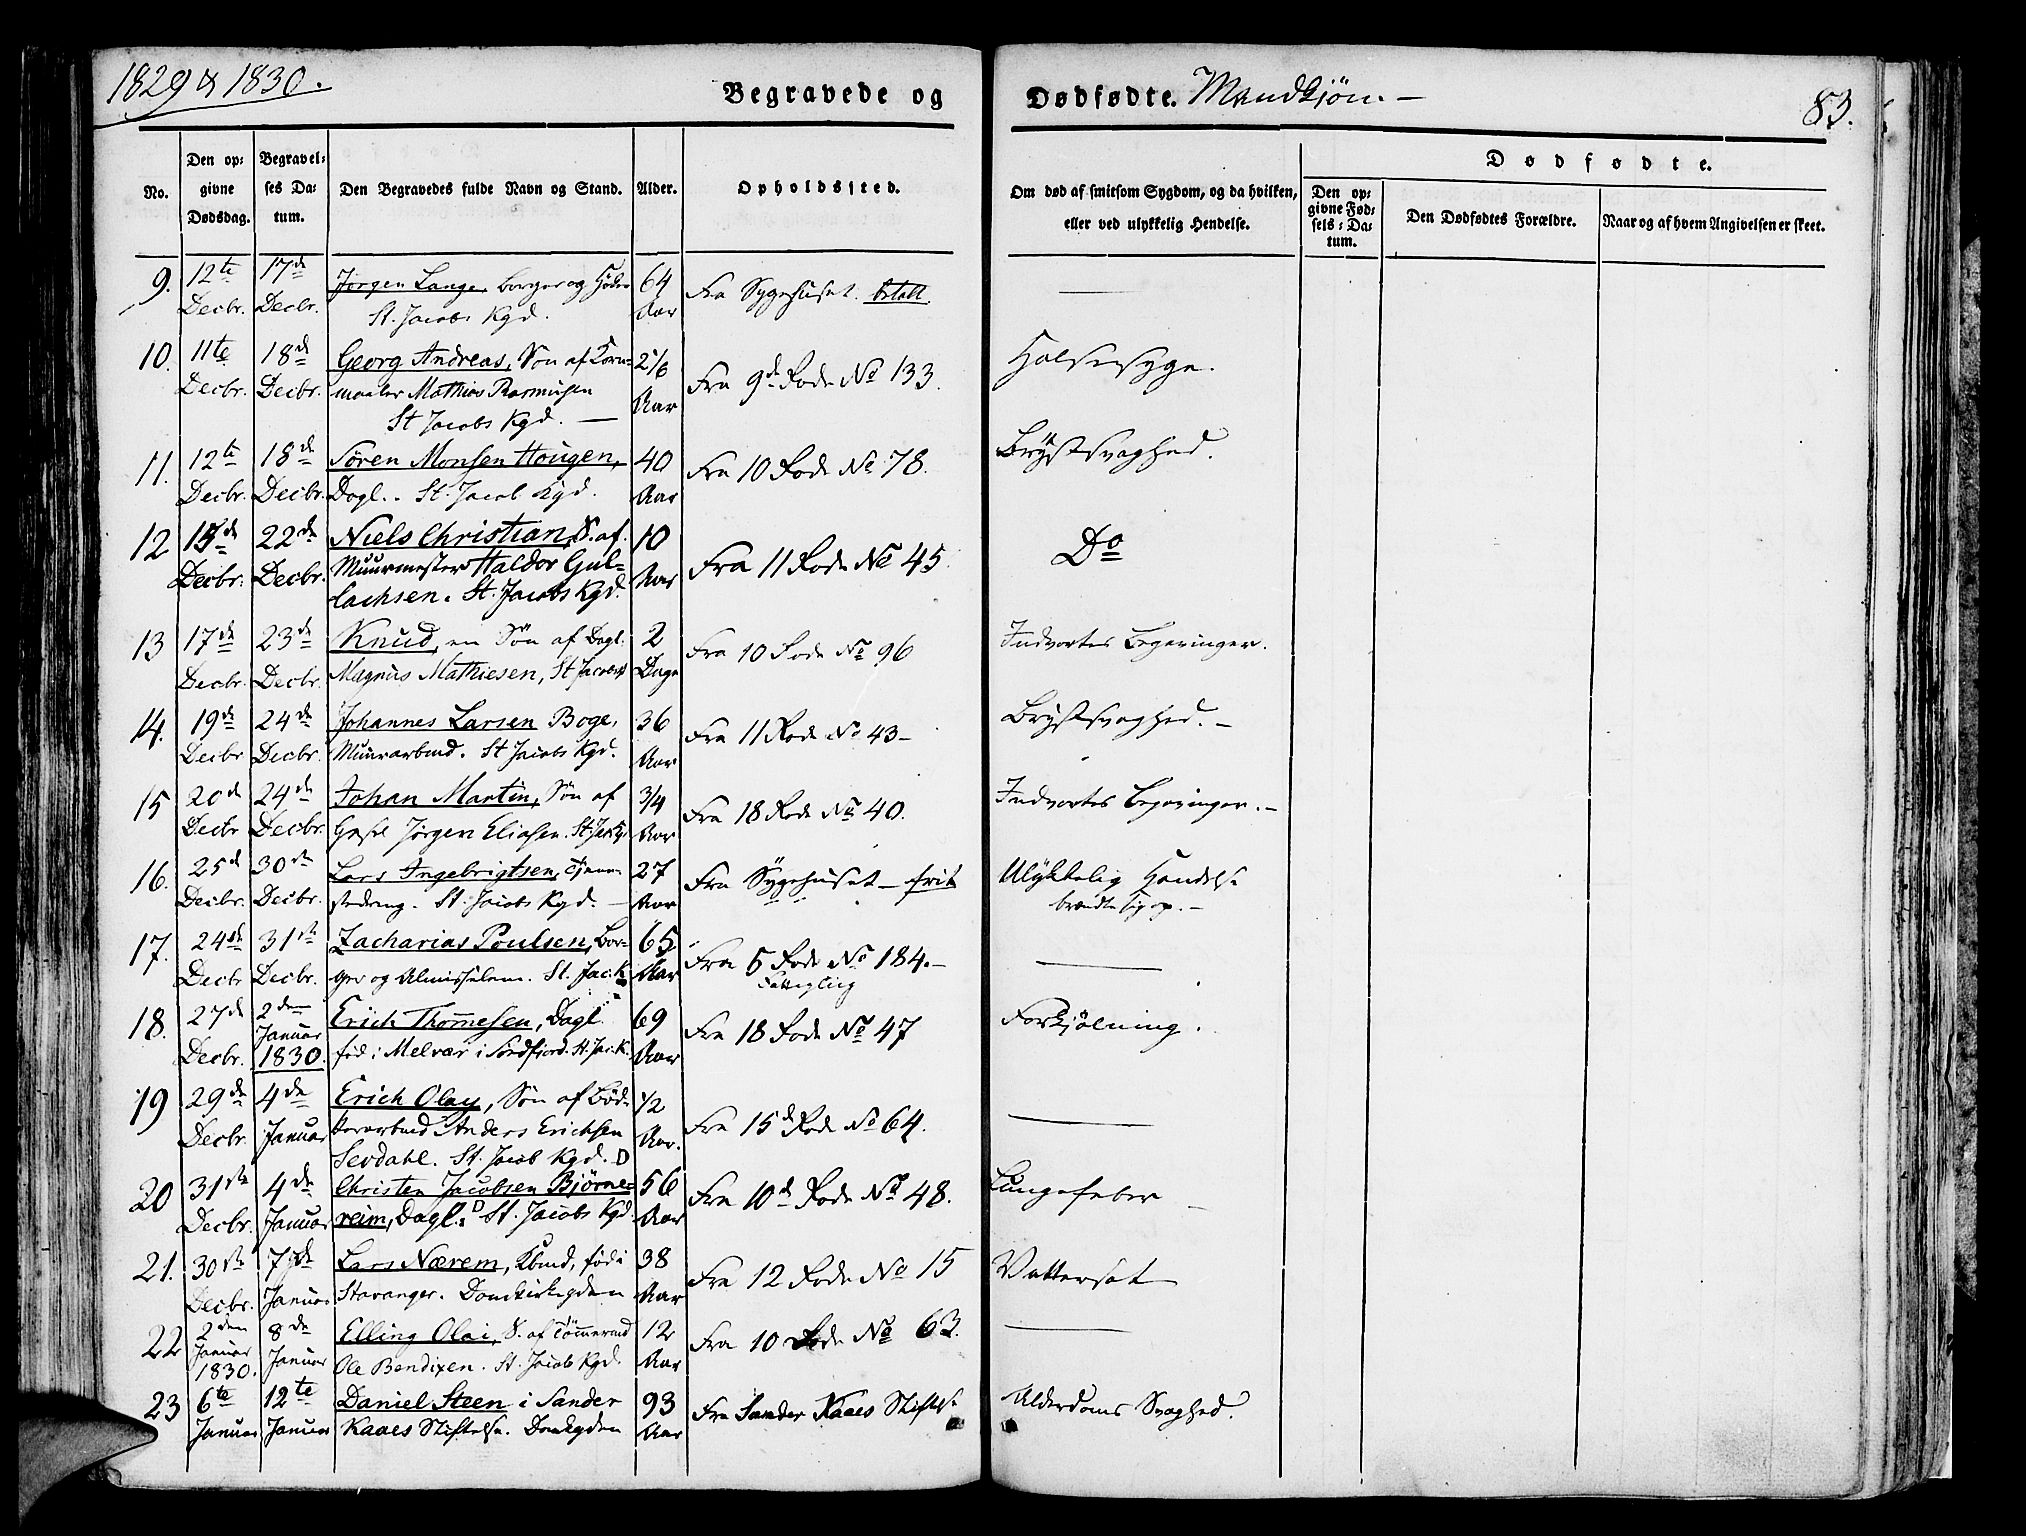 1829 & 1830.
Begravede og Dødfødte. Mandkjön. —
83.
No.
Den op-
givne
Dødsdag.
Begravel-
ses Da-
tum.
Den Begravedes fulde Navn og Stand.
Alder.
Opholdssted.
Om død af smitsom Sygdom, og da hvilken,
eller ved ulykkelig Hendelse.
Dødfødte.
Den op-
givne Fød-
sels-Da-
tum.
Den Dødfødtes Forældre.
Naar og af hvem Angivelsen er skeet.
9. 12te Decbr. 17de Decbr. Jørgen Lange, borger og
St. Jacobs Kgd. 64 Aar Fra Sygehuset. betalt. —
10. 11te Decbr. 18de Decbr. Georg Andreas, Søn af Korn-
maaler Mathias Rasmusen
St Jacobs Kgd. — 2 1/6 Aar Fra 9de Rode No 133. Halsesyge.
11. 12te Decbr. 18de Decbr. Søren Monsen Hougen,
Dagl. St. Jacob Kgd. 40 Aar Fra 10 Rode No 78. Brÿstsvaghed.
12 15de Decbr. 22de Decbr. Niels Christian, S. af
Muurmester Haldor Gul-
lachsen. St. Jacobs Kgd. 10 Aar Fra 11 Rode No 45 Do
13 17de Decbr. 23de Decbr. Knud, en Søn af Dagl.
Magnus Mathiesen, St Jacobs 2 Dage Fra 10 Rode No 96 Indvortes
14. 19de Decbr 24de Decbr. Johannes Larsen Boge,
Muurarbmd. St Jacobs Kgd. 36 Aar Fra 11 Rode No 43 — Brystsvaghed. —
15 20d Decbr 24de Decbr. Johan Martin, Søn af
Jørgen Eliasen. St. 3/4 Aar Fra 18 Rode No 40. Indvortes
16. 25d Decbr. 30te Decbr. Lars Ingebrigtsen,
St. Jacobs Kgd. — 27 Aar Fra Sygehuset — frit Ulykkelig Hendelse
brændte sig op. —
17. 24de Decbr 31te Decbr. Zacharias Poulsen, Bor-
ger og St. Jac. K 65 Aar Fra 5 Rode No 184. —
Fattiglig —
18. 27d Decbr. 2den Januar 1830. Erich Thommesen, Dagl
fød i Melvær i Søndfjord. St. Jac. K. 69 Aar Fra 18 Rode No 47 Forkjölning.
19 29de Decbr. 4de Januar Erich Olay, Søn af Bød-
kerarbmd Anders Erichsen
Sevdahl. St. Jacob Kgd. D 1/2 Aar. Fra 15de Rode No 64. —
20 31te Decbr. 4de Januar Christen Jacobsen Bjørne-
reim, Dagl. D St. Jacobs Kgd. 56 Aar Fra 10d Rode No 48. Lungefeber
21. 30te Decbr. 7de Januar Lars Nærem, Kbmd, fød i
Stavanger. Domkirkegden 38 Aar Fra 12 Rode No 15 Vattersot
22 2den Januar 1830. 8de Januar Elling Olai, S. af Tømmermd
Ole Bendixen. St. Jacobs Kgd. 12 Aar Fra 10 Rode No 63. —
23 6te Januar 12te Januar Daniel Steen i Sander
Kaaes Stiftelse. Domkgden 93 Aar Fra Sander Kaaes Stiftelse Alderdoms Svaghed.